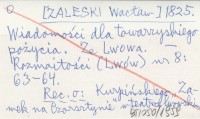 [ZALESKI Wacław] 1825.
Wiadomości dla towarzyskiego
pożycia. Ze Lwowa. –
Rozmaitości (Lwów) nr 8:
63–64.
Rec. o: Kurpińskiego, Za-
mek na Czorsztynie w teatrze lwowskim